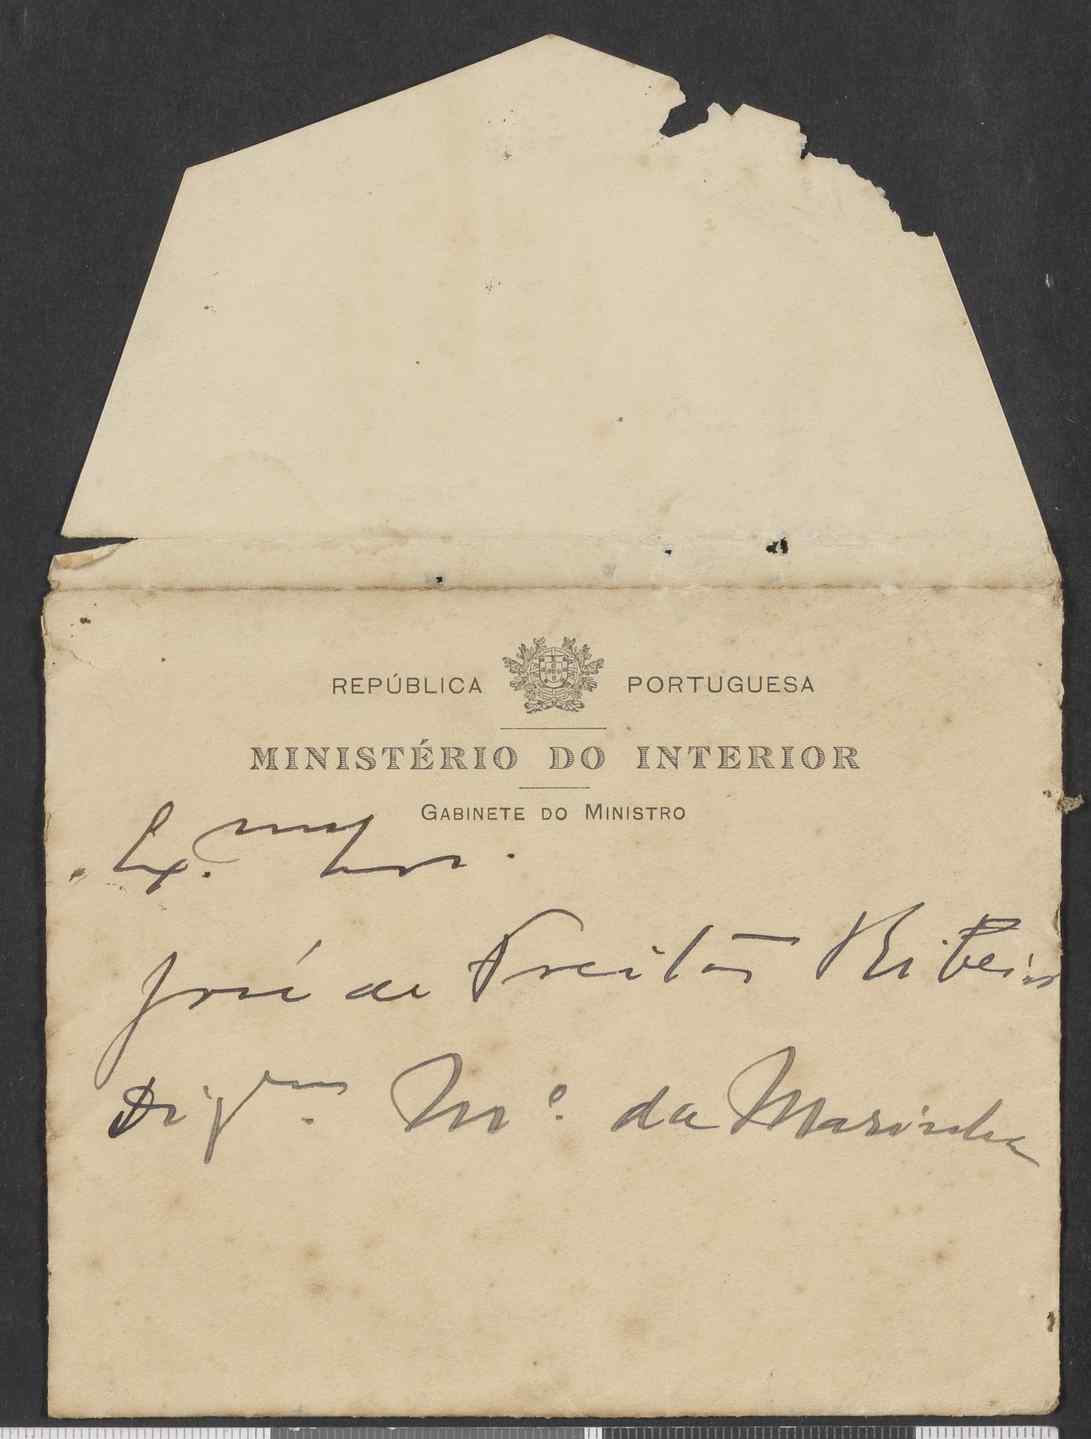 REPÚBLICA PORTUGUESA
MINISTÉRIO DO INTERIOR
GABINETE DO MINISTRO
Ex.mo Snr.
José de Freitas Ribeiro
Dig.mo M.º da Marinha